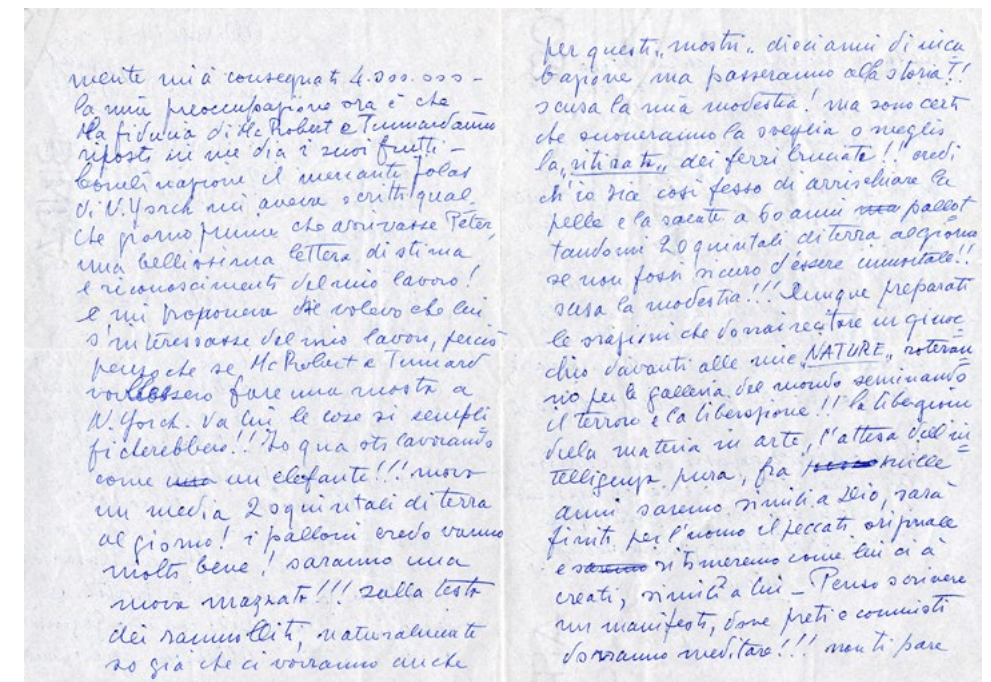 mente mi à consegnati 4.000.000 -
la mia preoccupazione ora è che
la fiducia di McRobert e Tunnard anno
riposti in me dia i suoi frutti -
Combinazione il mercante Jolas
di N.Yorch mi aveva scritti qual
che giorno prima che arrivasse Peter,
una bellissima lettera di stima
e riconoscimenti del mio lavoro!
e mi proponeva se volevo che lui
s'interessasse del mio lavoro, perciò
penso che se McRobert e Tunnard
volessero fare una mostra a
N.Yorch. da lui le cose si sempli
ficherebbero!! Io qua sto lavorando
come un elefante!!! movo
in media 20 quintali di terra
al giorno! i palloni credo vanno
molto bene! saranno una
nova mazzata!!! sulla testa
dei rammolliti, naturalmente
so già che ci vorranno anche
per questi „mostri„ dieci anni di incu
bazione, ma passeranno alla storia!!
scusa la mia modestia! ma sono certi
che suoneranno la sveglia o meglio
la „ritirata„ dei ferri bruciati!! credi
ch'io sia così fesso di arrischiare la
pelle e la salute a 60 anni pallot
tandomi 20 quintali di terra al giorno
se non fossi sicuro d'essere immortale!!
scusa la modestia!!! Dunque preparati
le orazioni che dovrai recitare in ginoc
chio davanti alle mie „NATURE„ roteran
no per le galleria del mondo seminando
il terrore e la liberazione!! la liberazione
dela materia in arte, l'attesa del'in
telligenza pura, fra mille
anni saremo simili a Dio, sarà
finiti per l'uomo il peccati originale
e si stimeremo come lui ci à
creati, simili a lui - Penso scrivere
un manifesti, dove preti e comunisti
dovranno meditare!!! non ti pare